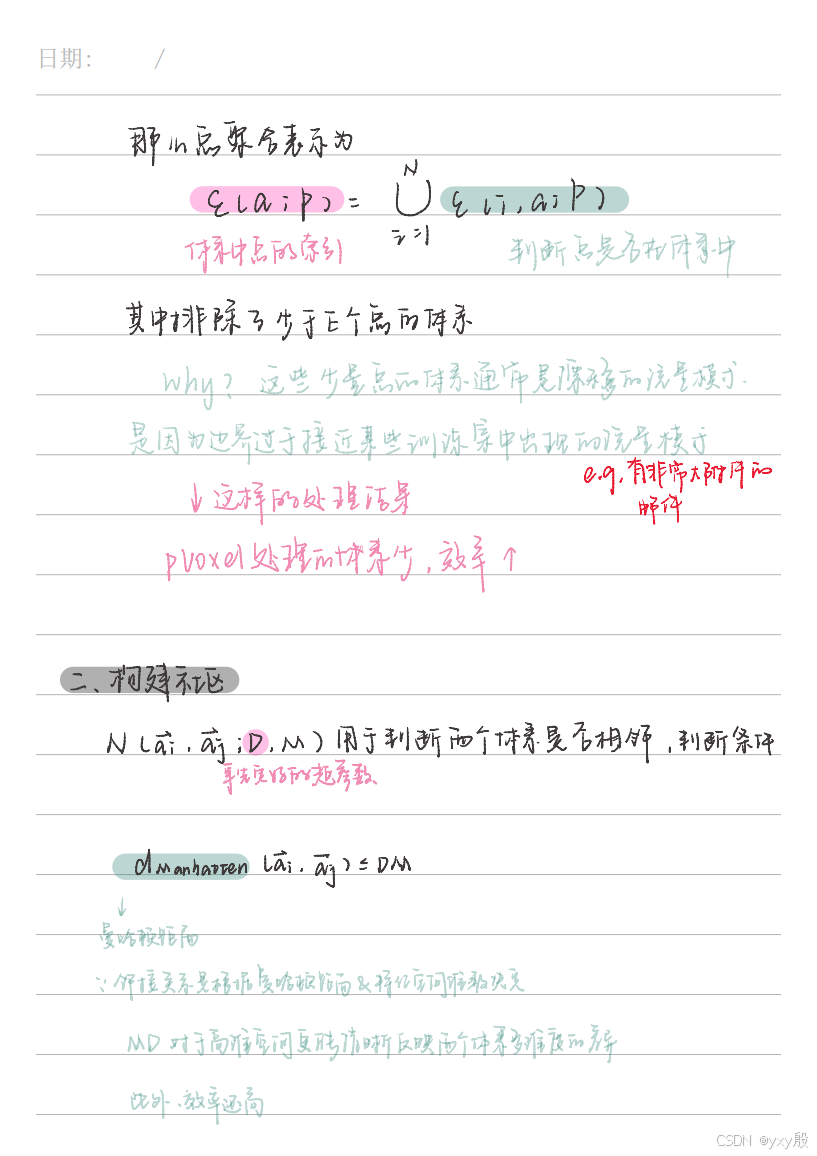 日期: /
那么点聚合表示为
ξ(a;p) = ⋃ᵢ₌₁ᴺ ξ(i,a;p)
体素中点的索引 判断点是否在体素中
其中排除了少于E个点的体素
why? 这些少量点的体素通常是漂移的流量模式.
是因为边界过于接近某些训练集中出现的流量模式
e.g. 有非常大附件的
邮件
↓ 这样的处理结果
pvoxel处理的体素少, 效率↑
二、构建社区
N(a⃗i, a⃗j; D, M) 用于判断两个体素是否相邻, 判断条件
事先定好的超参数
dManhatten (a⃗i, a⃗j) ≤ DM
↓
曼哈顿距离
∵ 邻接关系是根据曼哈顿距离&特征空间维数决定
MD 对于高维空间更能清晰反映两个体素多维度的差异
此外, 效率还高
CSDN @yxy殷